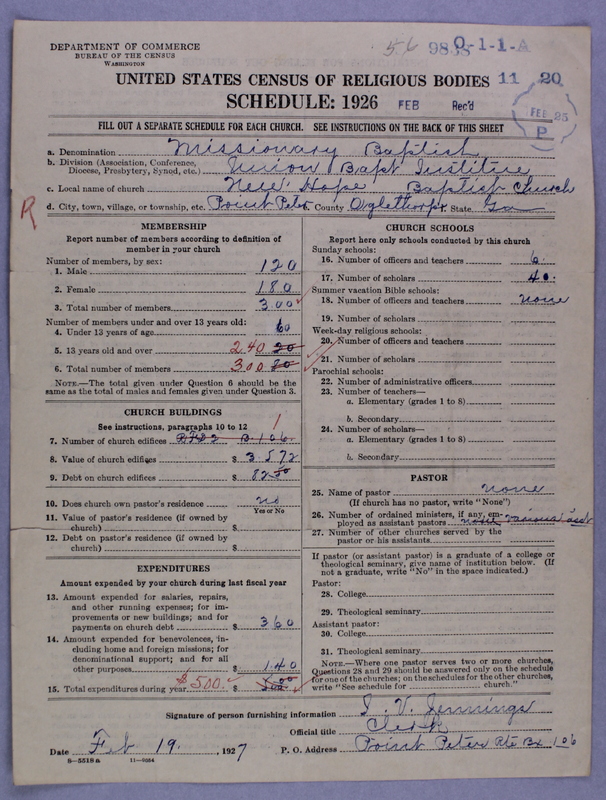 56 9838 O-1-1-A
DEPARTMENT OF COMMERCE
BUREAU OF THE CENSUS
WASHINGTON
UNITED STATES CENSUS OF RELIGIOUS BODIES 11 20
SCHEDULE: 1926 FEB Rec'd
FEB 25
P
FILL OUT A SEPARATE SCHEDULE FOR EACH CHURCH. SEE INSTRUCTIONS ON THE BACK OF THIS SHEET
a. Denomination Missionary Baptist
b. Division (Association, Conference,
Diocese, Presbytery, Synod, etc.) Union Bapt Institue
c. Local name of church New Hope Baptist Church
d. City, town, village, or township, etc. Point Peter County Oglethorpe State Ga
R
MEMBERSHIP
Report number of members according to definition of
member in your church
Number of members, by sex:
1. Male 120
2. Female 180
3. Total number of members 300
Number of members under and over 13 years old:
4. Under 13 years of age 60
5. 13 years old and over 240 20
6. Total number of members 300 80
NOTE.—The total given under Question 6 should be the
same as the total of males and females given under Question 3.
CHURCH BUILDINGS
See instructions, paragraphs 10 to 12
1
7. Number of church edifices B. 106
8. Value of church edifices $ 3572
9. Debt on church edifices $ 82 50
10. Does church own pastor's residence no
Yes or No
11. Value of pastor's residence (if owned by
church) $
12. Debt on pastor's residence (if owned by
church) $
EXPENDITURES
Amount expended by your church during last fiscal year
13. Amount expended for salaries, repairs,
and other running expenses; for im-
provements or new buildings; and for
payments on church debt $ 360
14. Amount expended for benevolences, in-
cluding home and foreign missions; for
denominational support; and for all
other purposes $ 140
15. Total expenditures during year $500. $
CHURCH SCHOOLS
Report here only schools conducted by this church
Sunday schools:
16. Number of officers and teachers 6.
17. Number of scholars 40.
Summer vacation Bible schools:
18. Number of officers and teachers none
19. Number of scholars
Week-day religious schools:
20. Number of officers and teachers
21. Number of scholars
Parochial schools:
22. Number of administrative officers
23. Number of teachers—
a. Elementary (grades 1 to 8)
b. Secondary
24. Number of scholars—
a. Elementary (grades 1 to 8)
b. Secondary
PASTOR
25. Name of pastor none
(If church has no pastor, write "None")
26. Number of ordained ministers, if any, em-
ployed as assistant pastors
27. Number of other churches served by the
pastor or his assistants
If pastor (or assistant pastor) is a graduate of a college or
theological seminary, give name of institution below. (If
not a graduate, write "No" in the space indicated.)
Pastor:
28. College
29. Theological seminary
Assistant pastor:
30. College
31. Theological seminary
NOTE.—Where one pastor serves two or more churches,
Questions 28 and 29 should be answered only on the schedule
for one of the churches; on the schedules for the other churches,
write "See schedule for church."
Signature of person furnishing information I. V. Jennings
Official title Clerk
Date Feb 19, 1927 P. O. Address Point Peter Rte Bx 106
8—5518a 11—9364